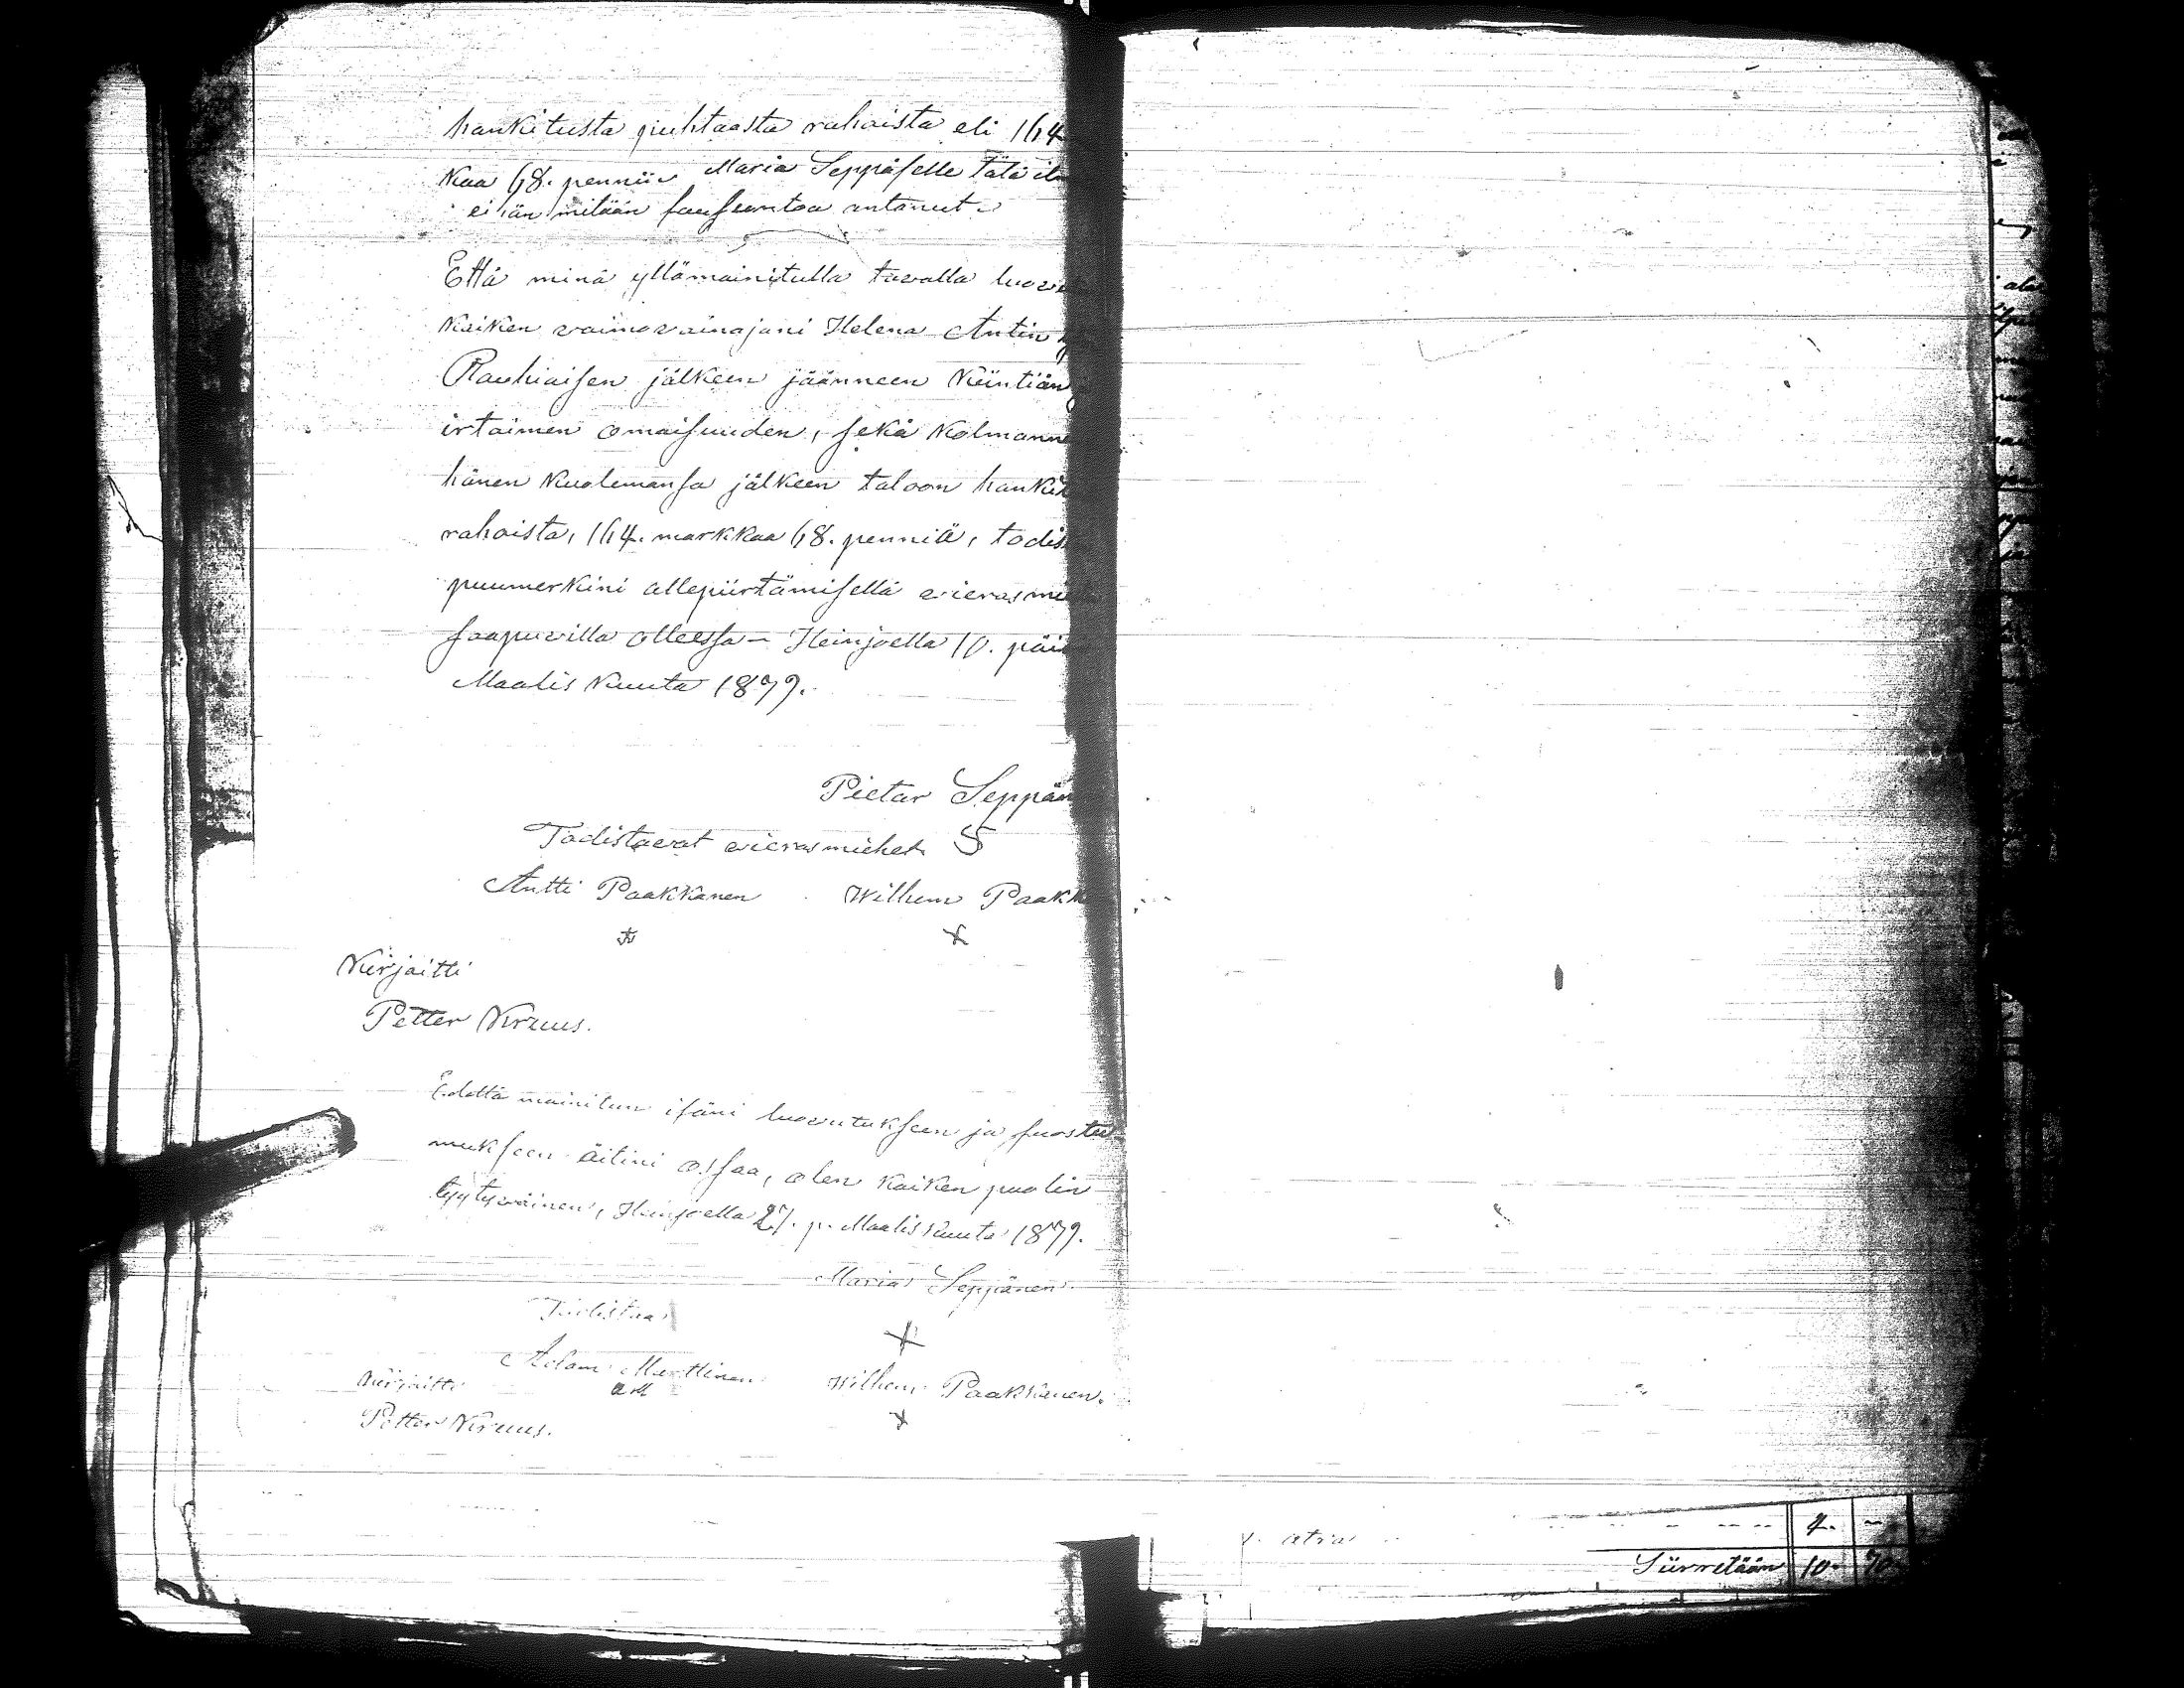 hankitusta puhtaasta rahaista eli 164
kaa 68. penniä Maria Seppäselle tätä
ei än mitään suusuntoa antanut.
Että minä yllämainitulla tavalla luovu
kaiken vaimovainajani Helena Antin
Rauhiaisen jälkeen jäänneen kiintiän
irtaimen omaisuuden, sekä kolmanne
hänen kuolemansa jälkeen taloon hankit
rahaista, 164. markkaa 68. penniä, todis
puumerkini allepiirtämisellä vierasmie
saapuvilla ollessa - Heinjoella 10. päi
Maalis kuuta 1879.
Pietar Seppän
Todistavat vierasmiehet. S
Antti Paakkanen Wilhem Paakk
x
Kirjoitti
Petter Kiruus.
Edellä mainitun isäni luovutukseen ja suostu-
mukseen äitini osaa, olen kaiken puolin
tyytyväinen, Heinjoella 27. p. Maaliskuuta 1879.
Maria Seppänen.
Todistaa
x
Adam Marttinen Wilhem Paakkanen.
Kirjoitti AM x
Petter Kiruus.
4. -
Siirretään 10. 70